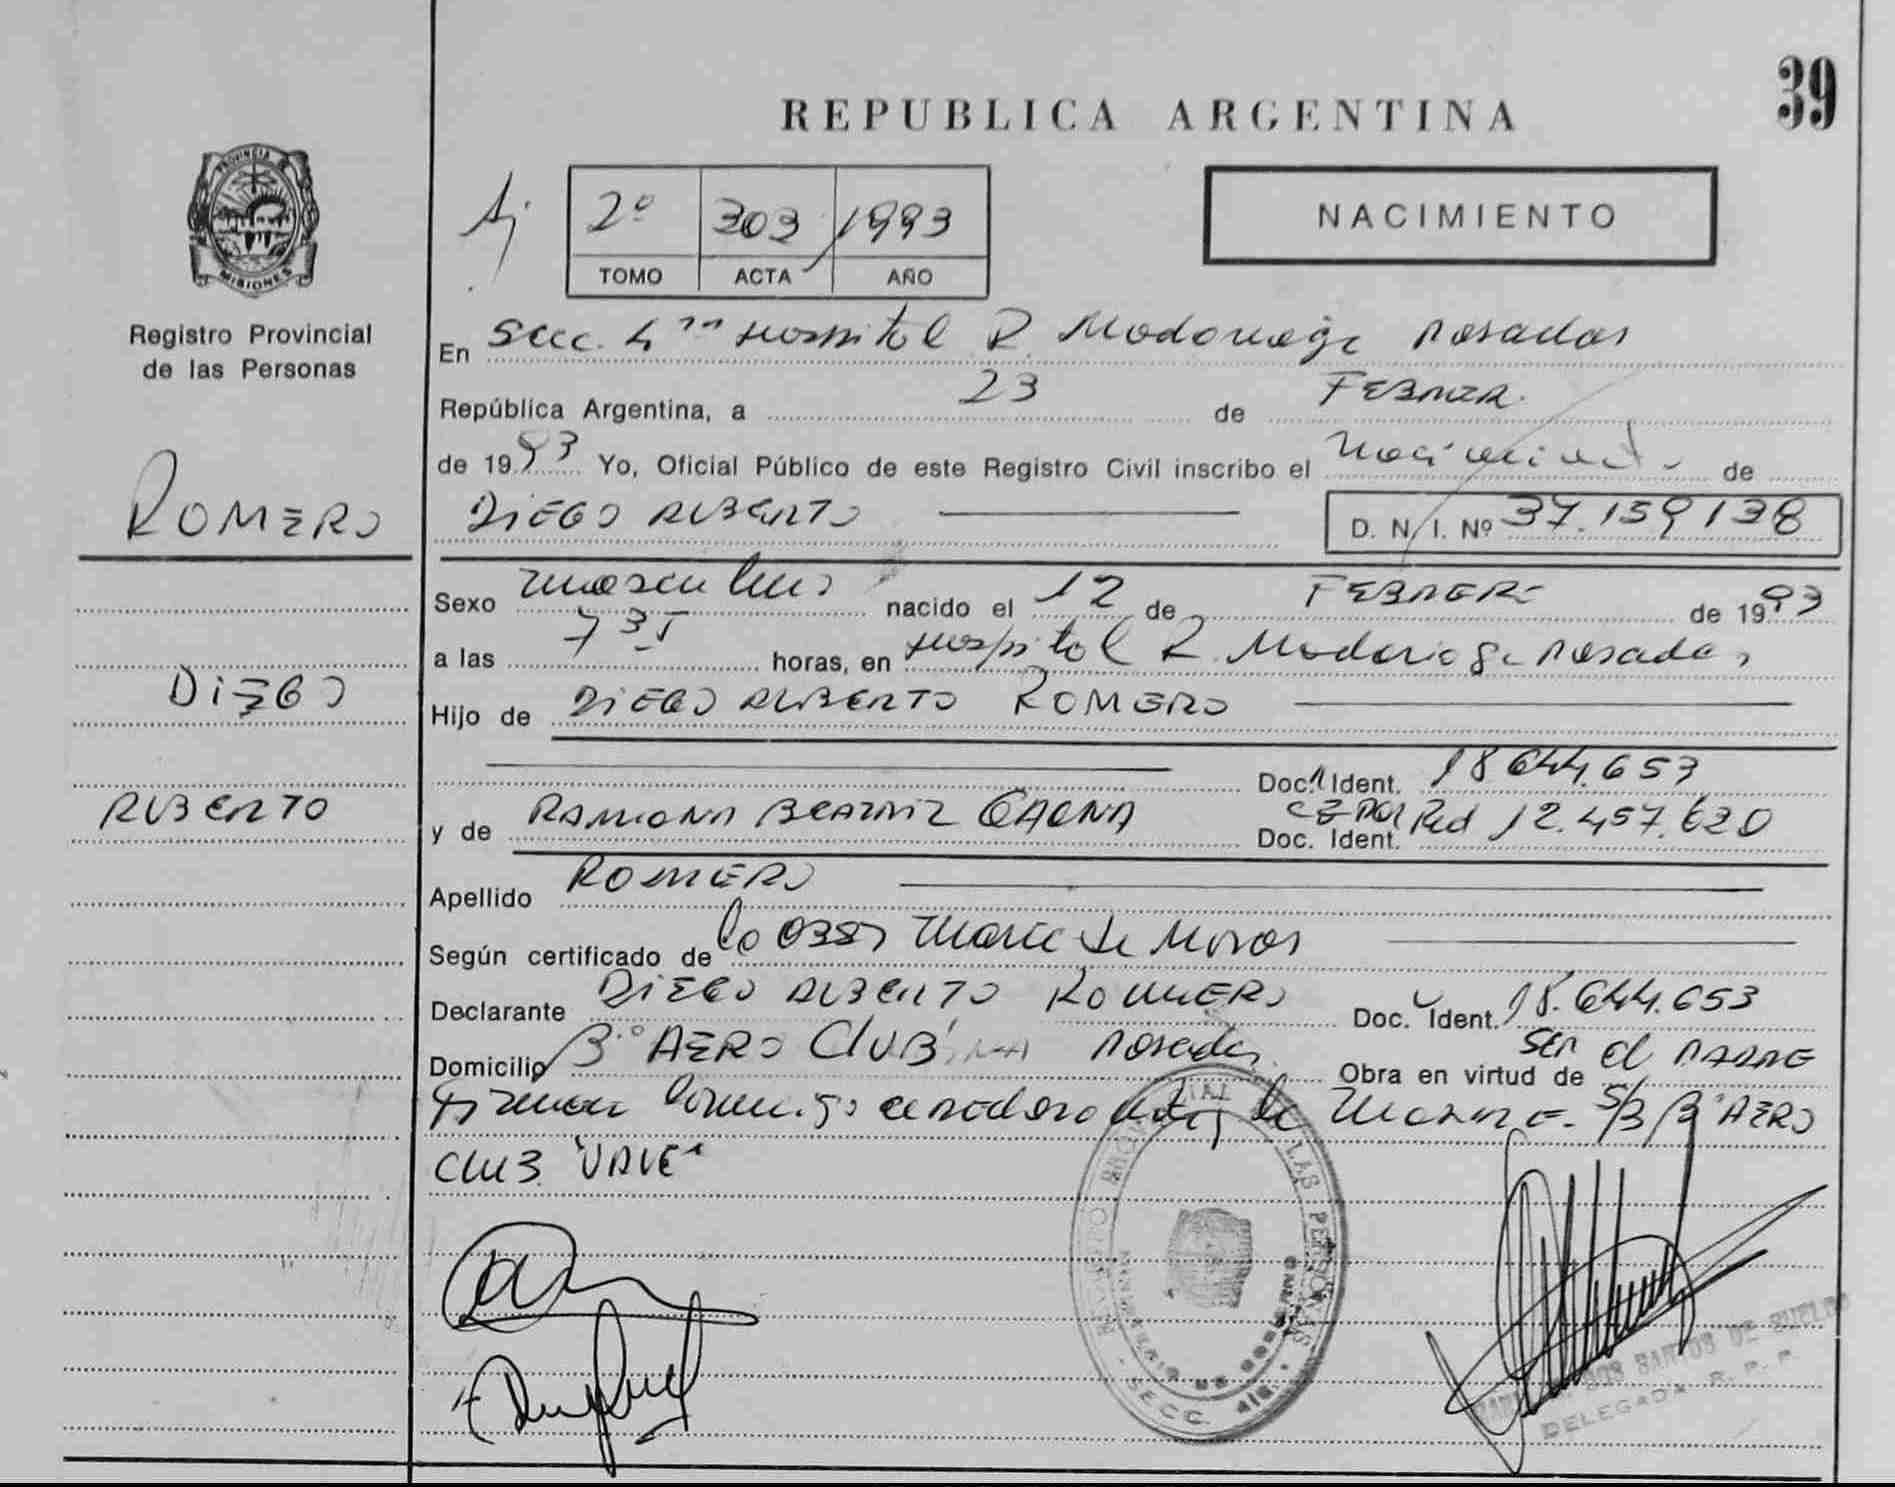 39
REPUBLICA ARGENTINA
PROVINCIA DE
MISIONES
Registro Provincial
de las Personas
2º 303 1993
TOMO ACTA AÑO
NACIMIENTO
En Secc. 4ta Hospital R. Madariaga Posadas
República Argentina, a 23 de FEBRER
de 1993 Yo, Oficial Público de este Registro Civil inscribo el nacimiento de
ROMERO
DIEGO ALBERTO
D. N. I. Nº 37.159138
Sexo masculino nacido el 12 de FEBRERO de 1993
a las 7 35 horas, en Hospital R. Madariaga Posadas
DIEGO
Hijo de DIEGO ALBERTO ROMERO
Doc. Ident. 18 644.653
ALBERTO
y de RAMONA BEATRIZ GAONA
Doc. Ident. CED Pol Fed 12.457.620
Apellido ROMERO
Según certificado de la
Declarante DIEGO ALBERTO ROMERO Doc. Ident. 18.644.653
Domicilio Bº AERO CLUB Posadas Obra en virtud de SER el PADRE
la Bº AERO
CLUB "VALE"
REGISTRO PROVINCIAL DE LAS PERSONAS
SECC. 4ta.
DOS SANTOS DE
DELEGADA R. P. P.